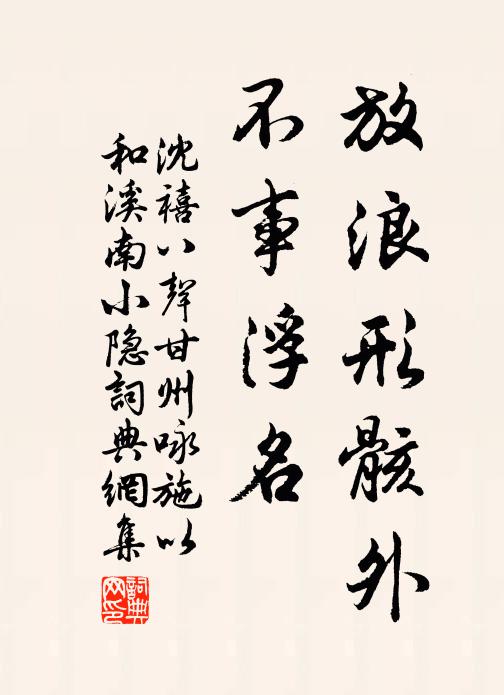 放浪形骸外
不事浮名
沈禧八聲甘州咏施以
和溪南小隐詞典網集
詞典网印